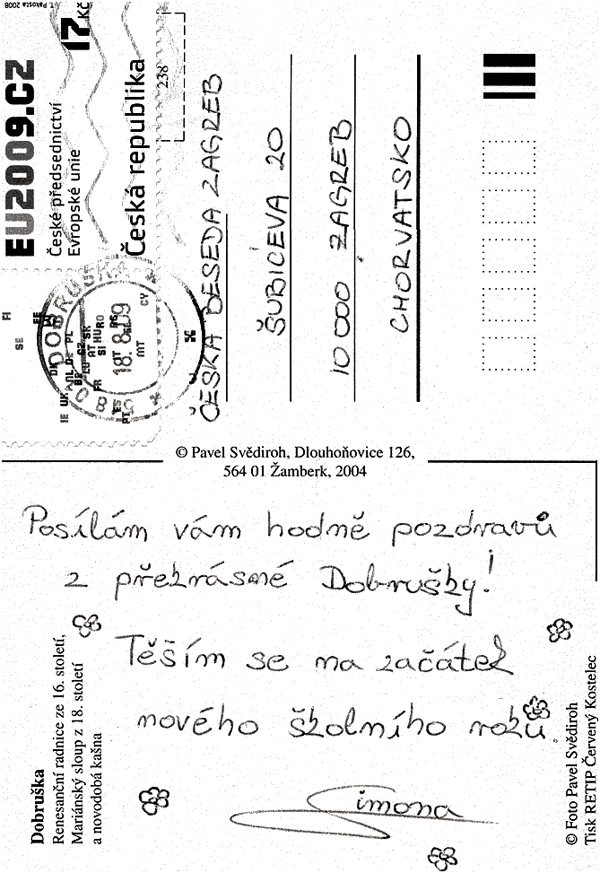 EU2009.CZ
České předsednictví
Evropské unie
Česká republika
17 Kč
T. Pakosta 2008
238
DOBRUŠKA
18.8.09
ČESKÁ BESEDA ZAGREB
ŠUBIĆEVA 20
10 000 ZAGREB
CHORVATSKO
© Pavel Svědiroh, Dlouhoňovice 126,
564 01 Žamberk, 2004
Posílám vám hodně pozdravů
z překrásné Dobrušky!
Těším se na začátek
nového školního roku.
Simona
Dobruška
Renesanční radnice ze 16. století,
Mariánský sloup z 18. století
a novodobá kašna
© Foto Pavel Svědiroh
Tisk RETIP Červený Kostelec